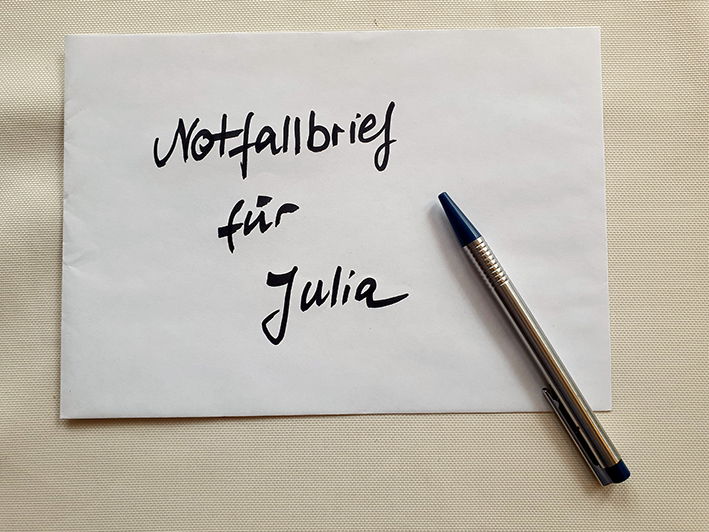 Notfallbrief
für
Julia